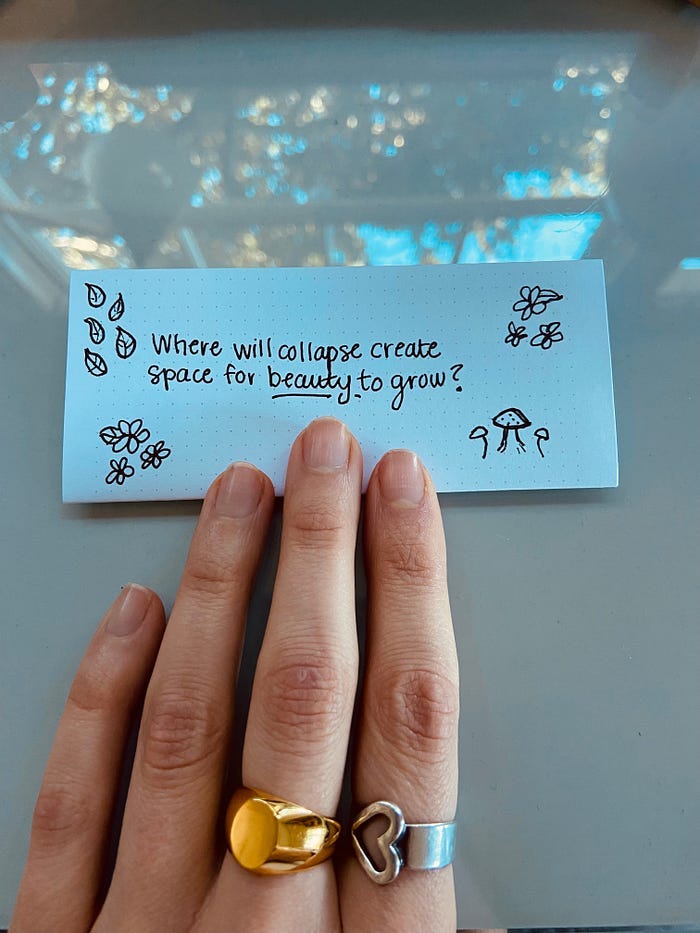 Where will collapse create
space for beauty to grow?